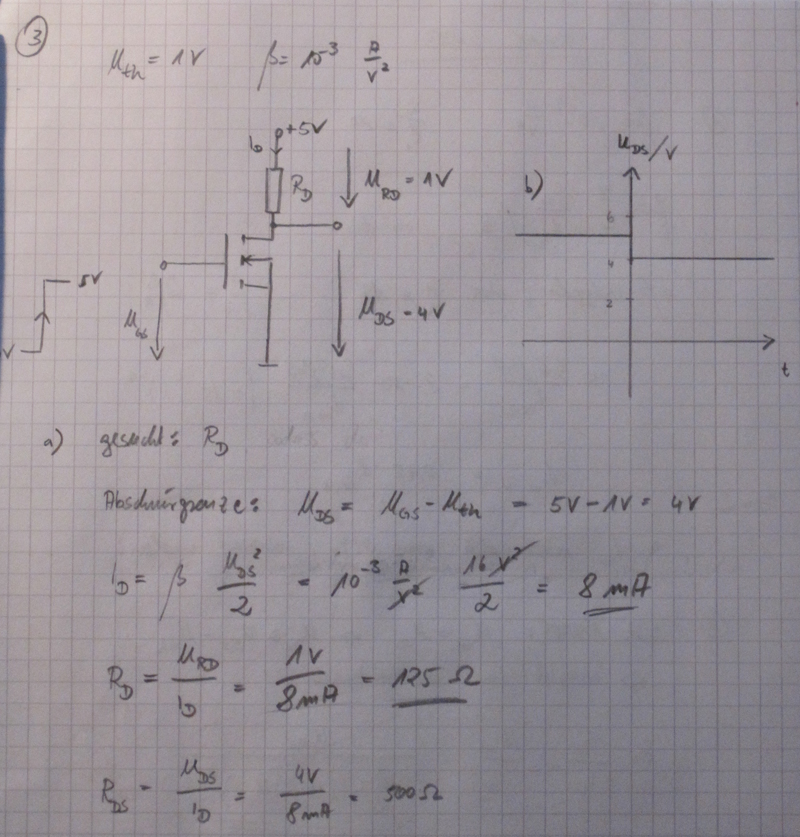 3
U_th = 1V β = 10^-3 A/V²
+5V
I_D
R_D
U_RD = 1V
b)
U_DS/V
6
4
2
t
5V
V
U_GS
U_DS = 4V
a) gesucht: R_D
Abschnürgrenze: U_DS = U_GS - U_th = 5V - 1V = 4V
I_D = β U_DS²/2 = 10^-3 A/V² 16 V²/2 = 8 mA
R_D = U_RD/I_D = 1V/8mA = 125 Ω
R_DS = U_DS/I_D = 4V/8mA = 500Ω